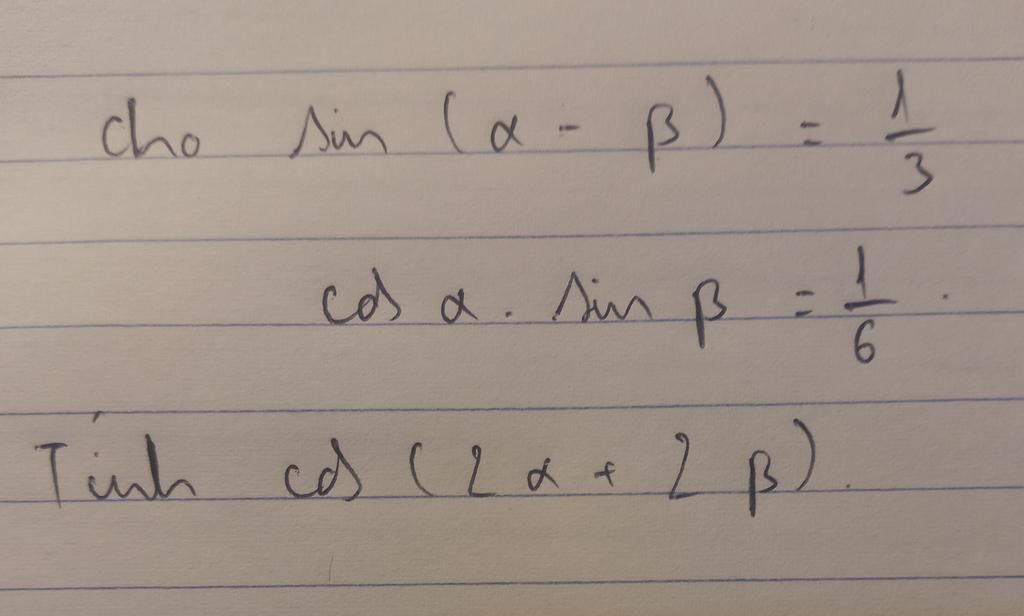 Cho sin (α - β) = 1/3
cos α . sin β = 1/6 .
Tính cos (2α + 2β).